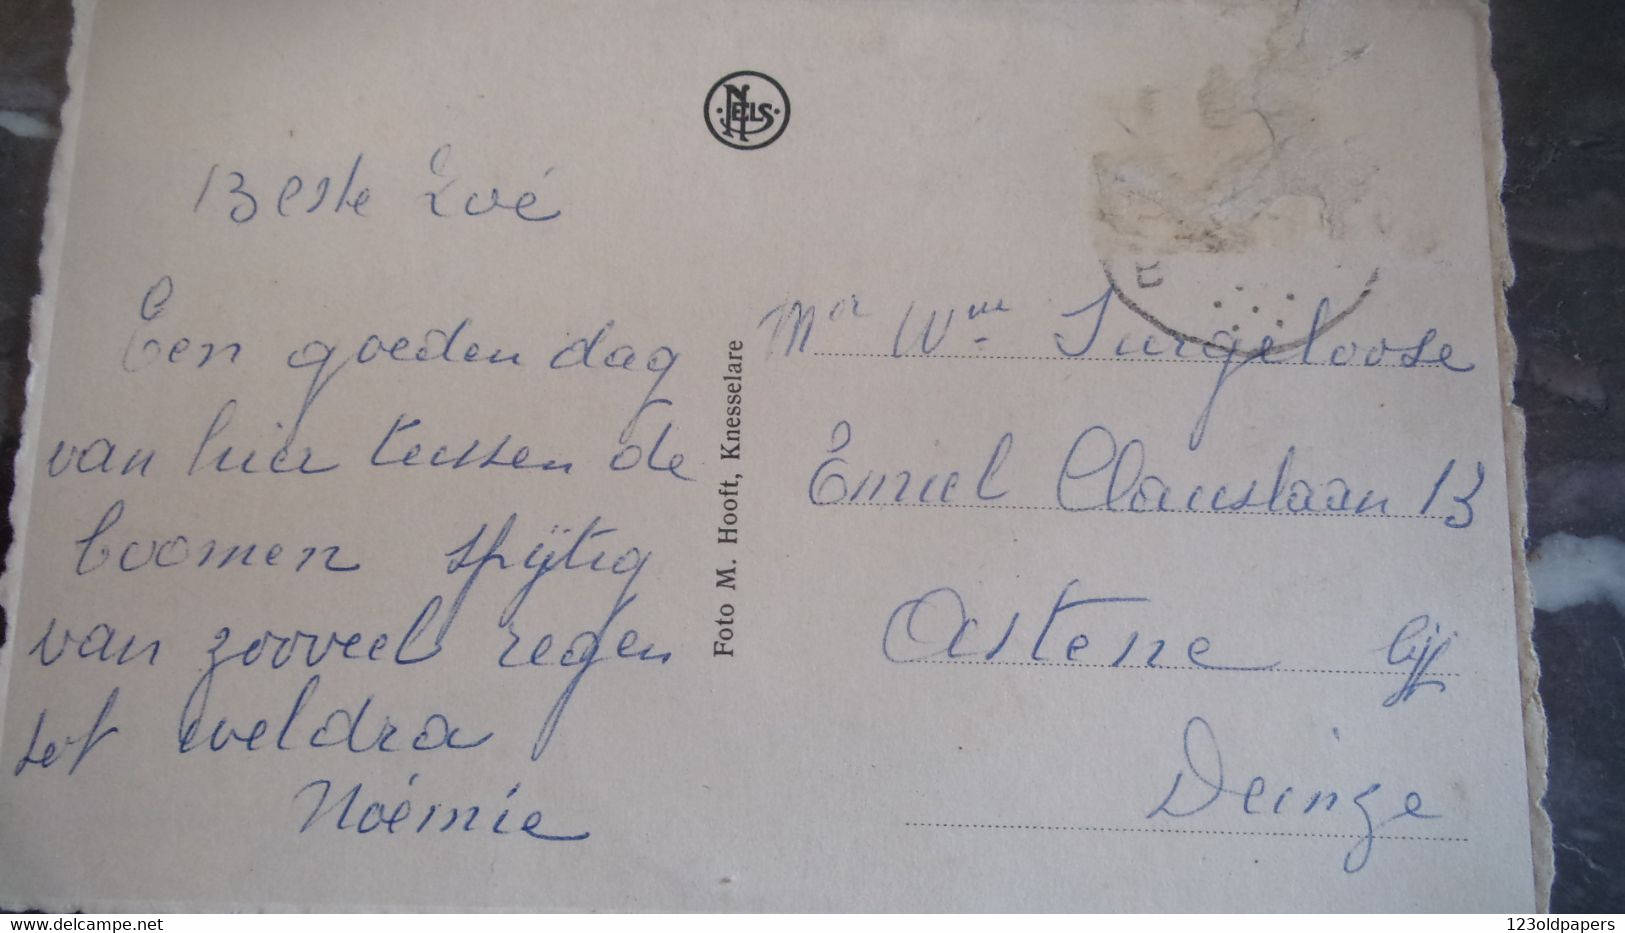 NELS
Beste Zoé
Een goeden dag
van hier tussen de
boomen spijtig
van zooveel regen
tot weldra
Noémie
Foto M. Hooft, Knesselare
Mr Wme Surgeloose
Emiel Clauslaan 13
Astene bij
Deinze
delcampe.net
123oldpapers